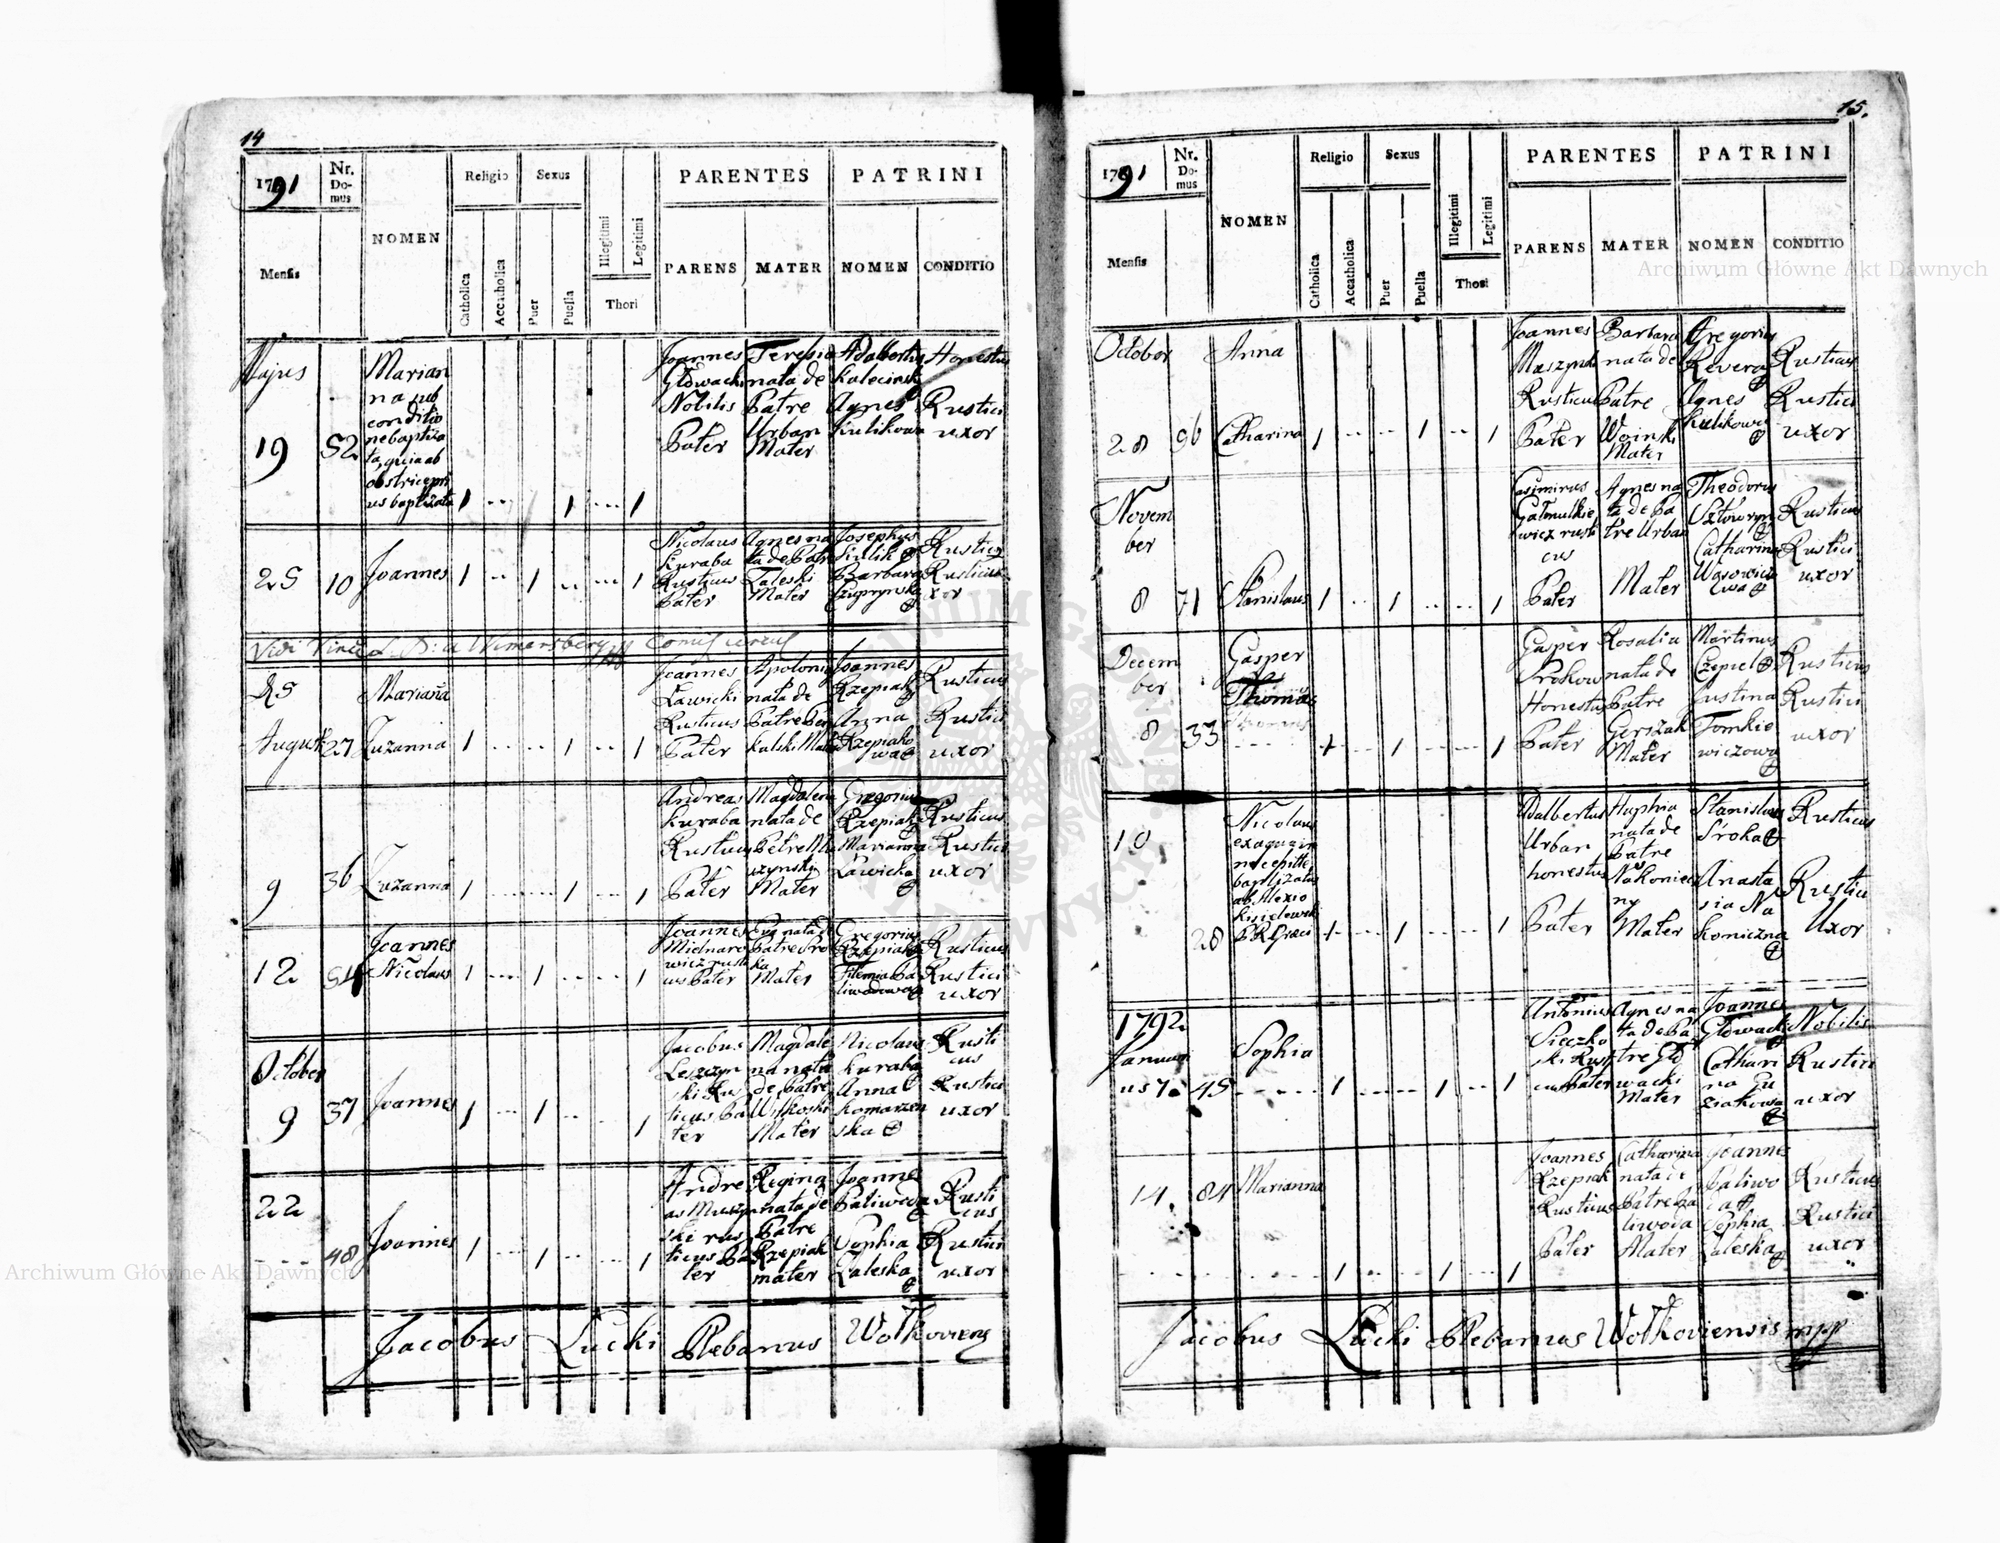 14
1791
Nr. Domus
NOMEN
Religio
Sexus
PARENTES
PATRINI
Mensis
Catholica
Accatholica
Puer
Puella
Illegitimi
Legitimi
Thori
PARENS
MATER
NOMEN
CONDITIO
Majus
19
52
Marian
na sub
conditio
ne baptiza
ta, quia ab
obstrice pri
us baptizata
1
1
1
Joannes
Głowacki
Nobilis
Pater
Teresia
nata de
Patre
Urban
Mater
Adalbertus
Agnes
Kulikowa
Honestus
Rustici
uxor
25
10
Joannes
1
1
1
Nicolaus
Kuraba
Rusticus
Pater
Agnes na
ta de Patre
Zaleski
Mater
Josephus
Kulik
Barbara
Czuprynska
Rusticus
Rustici u
xor
Vidi
25
August
27
Mariana
Zuzanna
1
1
1
Joannes
Lawicki
Rusticus
Pater
Apolonia
nata de
Patre
Mater
Joannes
Rzepiak
Anna
Rzepiako
wa
Rusticus
Rustici
uxor
9
36
Zuzanna
1
1
1
Andreas
Kuraba
Rusticus
Pater
Magdalena
nata de
Patre
Mater
Gregorius
Rzepiak
Marianna
Lawicka
Rusticus
Rustici
uxor
12
54
Joannes
Nicolaus
1
1
1
Joannes
wicz rusti
cus Pater
Eva nata de
Patre Pro
ka
Mater
Gregorius
Rzepiak
Rusticus
Rustici
uxor
October
9
37
Joannes
1
1
1
Jacobus
Leszczyn
ski Rus
ticus Pa
ter
Magdale
na nata
de Patre
Witkoski
Mater
Nicolaus
Kuraba
Anna
Komarzen
ska
Rusti
cus
Rustici
uxor
22
48
Joannes
1
1
1
Andre
as Muszyn
ski rus
ticus Pa
ter
Regina
nata de
Patre
Rzepiak
mater
Joannes
Paliwoda
Sophia
Zaleska
Rusti
cus
Rustici
uxor
Jacobus Łucki Plebanus Wołkoviens
15.
1791
Nr. Domus
NOMEN
Religio
Sexus
PARENTES
PATRINI
Mensis
Catholica
Accatholica
Puer
Puella
Illegitimi
Legitimi
Thori
PARENS
MATER
NOMEN
CONDITIO
October
28
96
Anna
Catharina
1
1
1
Joannes
Muszynski
Rusticus
Pater
Barbara
nata de
Patre
Woinski
Mater
Gregorius
Revera
Agnes
Kulikowa
Rusticus
Rustici
uxor
Novem
ber
8
71
Stanislaus
1
1
1
Casimirus
wicz rusti
cus
Pater
Agnes na
ta de Pa
tre Urban
Mater
Theodorus
Catharina
Wąsowicz
owa
Rusticus
Rustici
uxor
Decem
ber
8
33
Gasper
Thomas
1
1
1
Gasper
Prokow
Honestus
Pater
Rosalia
nata de
Patre
Gerszak
Mater
Martinus
Czepiel
Justina
Tomkie
wiczowa
Rusticus
Rustici
uxor
10
28
Nicolaus
baptizatus
ab Alexio
1
1
1
Adalbertus
Urban
honestus
Pater
nata de
Patre
Nakoniecz
ny
Mater
Stanislaus
Sroka
Anasta
sia Na
koniczna
Rusticus
Rustici
Uxor
1792
Januari
us 7.
45
Sophia
1
1
1
Antonius
Sieczko
ski Rusti
cus Pater
Agnes na
ta de Pa
tre Gło
wacki
Mater
Joannes
Głowacki
Cathari
na
Nobilis
Rustici
uxor
14.
84
Marianna
1
1
1
Joannes
Rzepiak
Rusticus
Pater
Catharina
nata de
Patre Pa
liwoda
Mater
Joannes
Paliwo
da
Sophia
Zaleska
Rusticus
Rustici
uxor
Jacobus Łucki Plebanus Wołkoviensis mpp
Archiwum Główne Akt Dawnych
Archiwum Główne Akt Dawnych